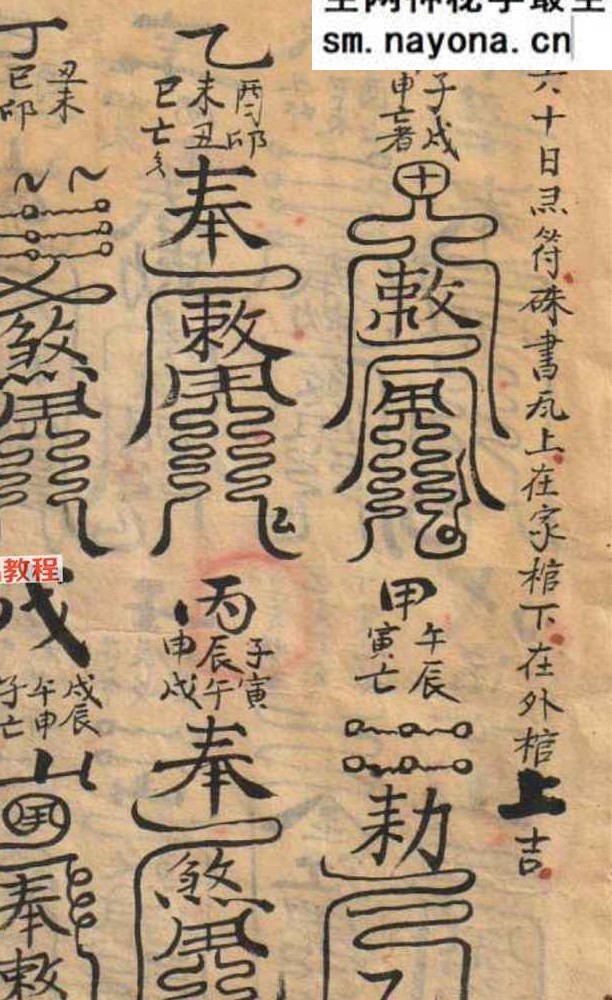 sm.nayona.cn
六十日灵符硃書瓦上在家棺下在外棺上吉
子戌
申亡者
敕
乙
酉卯
未丑
巳亡
奉
敕
丁
丑未
巳卯
煞
甲
午辰
寅亡
丙
子寅
辰午
申戌
奉
煞
教程
戊
戌辰
午申
子亡
奉
敕